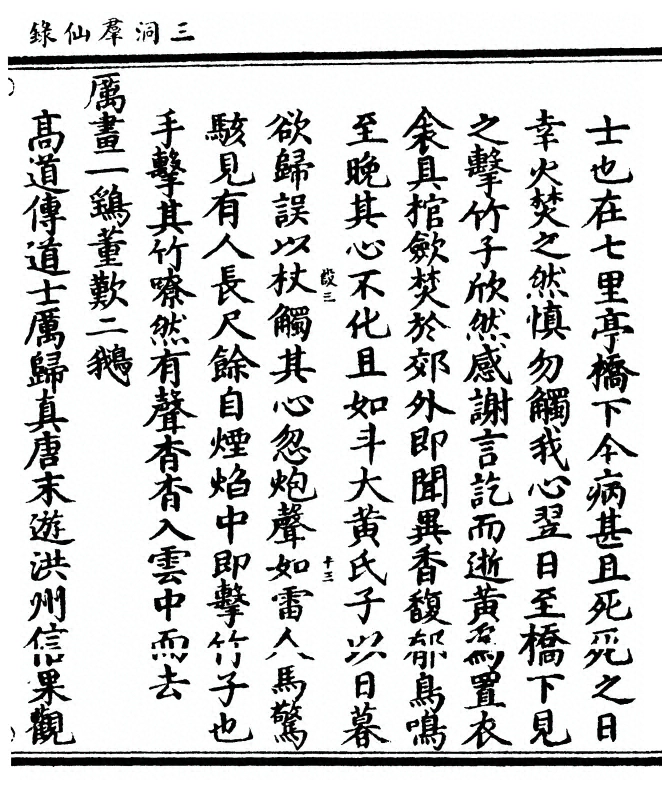 三洞羣仙錄
士也在七里亭橋下今病甚且死死之日
幸火焚之然慎勿觸我心翌日至橋下見
之擊竹子欣然感謝言訖而逝黃爲置衣
衾具棺歛焚於郊外即聞異香馥郁鳥鳴
至晚其心不化且如斗大黃氏子以日暮
欲歸誤以杖觸其心忽炮聲如雷人馬驚
設三
十三
駭見有人長尺餘自煙焰中即擊竹子也
手擊其竹嘹然有聲杳杳入雲中而去
厲畫一鷂董歎二鵝
高道傳道士厲歸真唐末遊洪州信果觀